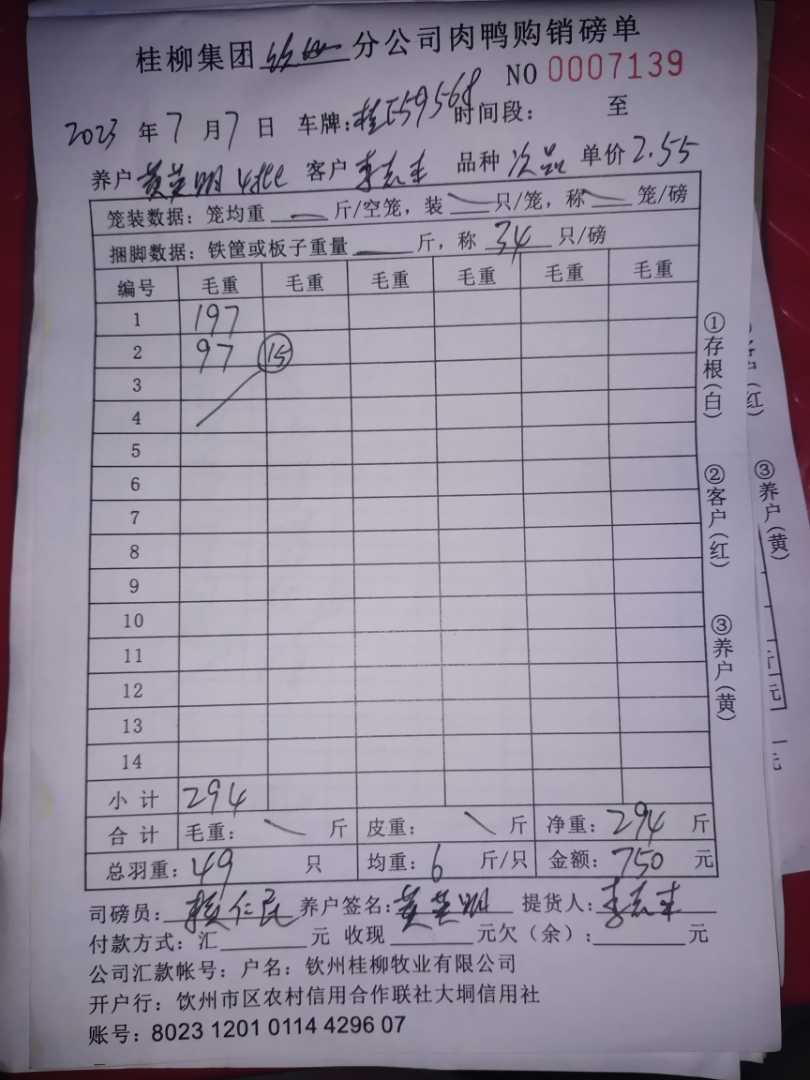 桂柳集团 钦州 分公司肉鸭购销磅单
NO 0007139
2023 年 7 月 7 日 车牌:桂E59568 时间段: 至
养户 黄英明 客户 李志丰 品种 次品 单价 2.55
笼装数据:笼均重 斤/空笼,装 只/笼,称 笼/磅
捆脚数据:铁筐或板子重量 斤,称 34 只/磅
编号 毛重 毛重 毛重 毛重 毛重 毛重
1 197
2 97 15
3
4
5
6
7
8
9
10
11
12
13
14
小计 294
合计 毛重: 斤 皮重: 斤 净重:294 斤
总羽重:49 只 均重:6 斤/只 金额:750 元
司磅员: 仁民 养户签名:黄英明 提货人:李志丰
付款方式:汇 元 收现 元欠(余): 元
公司汇款帐号:户名:钦州桂柳牧业有限公司
开户行:饮州市区农村信用合作联社大垌信用社
账号:8023 1201 0114 4296 07
①存根(白)
②客户(红)
③养户(黄)
(红)
③养户(黄)
斤
元
元